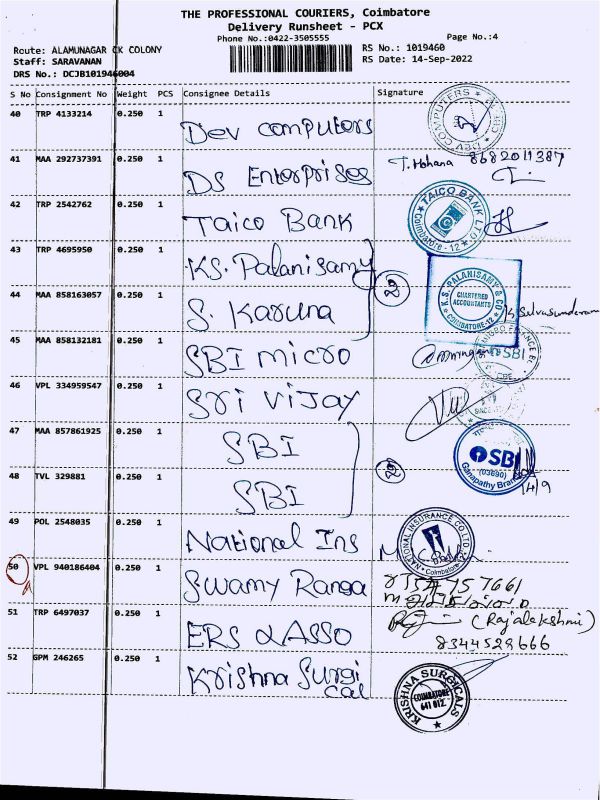 THE PROFESSIONAL COURIERS, Coimbatore
Delivery Runsheet - PCX
Phone No.:0422-3505555
Page No.:4
Route: ALAMUNAGAR CK COLONY
RS No.: 1019460
Staff: SARAVANAN
RS Date: 14-Sep-2022
DRS No.: DCJB101946004
S No Consignment No Weight PCS Consignee Details Signature
40 TRP 4133214 0.250 1 Dev computers
DEV COMPUTERS
41 MAA 292737391 0.250 1 DS Enterprises T. Mohana 8682011387
42 TRP 2542762 0.250 1 Taico Bank
TAICO BANK LTD
Coimbatore - 12
43 TRP 4695950 0.250 1 KS. Palanisamy
44 MAA 858163057 0.250 1 S. Karuna
2
K.S. PALANISAMY & CO
CHARTERED
ACCOUNTANTS
COIMBATORE-12
K Selvasundaram
45 MAA 858132181 0.250 1 SBI micro
SBI
46 VPL 334959547 0.250 1 Sri Vijay
47 MAA 857861925 0.250 1 SBI
48 TVL 329881 0.250 1 SBI
2
SBI
(03690)
Ganapathy Branch
14/9
49 POL 2548035 0.250 1 National Ins
NATIONAL INSURANCE CO. LTD.
Coimbatore
50 VPL 940186404 0.250 1 Swamy Ranga
51 TRP 6497037 0.250 1 ERS & ASSO
(Rajalakshmi)
8344529666
52 GPM 246265 0.250 1 Krishna Surgi
cal
KRISHNA SURGICALS
COIMBATORE
641 012.